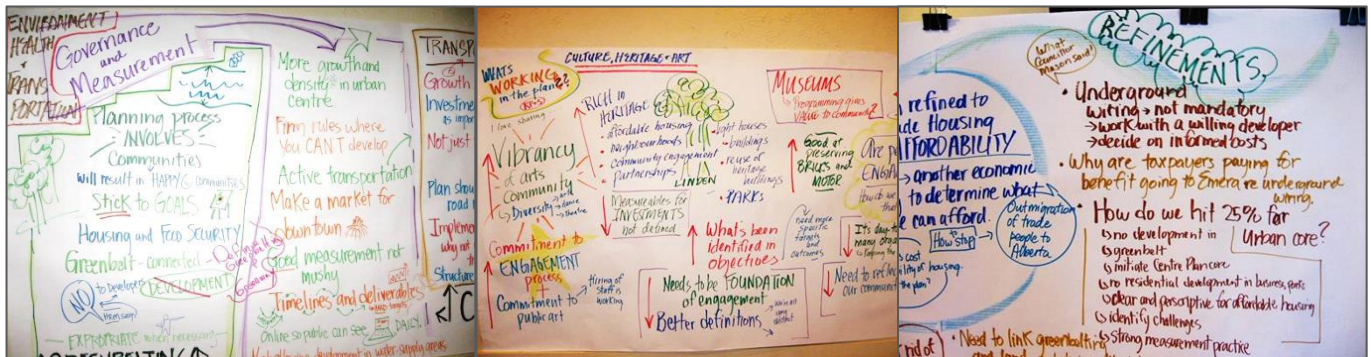 ENVIRONMENT
HEALTH
+
TRANS
PORTATION
Governance
and
Measurement
Planning process
INVOLVES
Communities
will result in HAPPY communities
Stick to GOALS
Housing and Food SECURITY
Greenbelt - connected
DEVELOPMENT
NO
to Developer
EXPROPRIATE when necessary
More growth and
density in urban
centre.
Firm rules where
you CAN'T develop
Active transportation
Make a market for
downtown
Good measurement not
mushy
Timelines and deliverables
Online so public can see
DAILY.
development in water supply areas
TRANSP
Growth
Investme
as impor
Not just
Plan shou
road
Impleme
why not
Structure
CULTURE, HERITAGE + ART
WHATS
WORKING
in the plan??
I love sharing
Vibrancy
of arts
community
Diversity
dance
theatre
Commitment to
ENGAGEMENT
process
Commitment to
public art
hiring of
staff is
working
RICH IN
HERITAGE
affordable housing
neighbourhoods
community engagement
partnerships
LINDEN
light houses
buildings
re use of
heritage
buildings
PARKS
Measureables for
INVESTMENTS
not defined
MUSEUMS
Programming gives
VALUE to community
Good at
preserving
BRICKS and
MOTOR
What's been
identified in
objectives
need more
specific
targets
and
outcomes
Needs to be FOUNDATION
of engagement
Better definitions
It's day to
many orga
Need to ref
our commun
Are p
ENGA
refined to
de Housing
AFFORDABILITY
another economic
to determine what
e can afford.
How stop
Outmigration
of trade
people to
Alberta
cost
bility of housing.
the plan?
What
Councillor
Mason said!
REFINEMENTS,
Underground
wiring → not mandatory
→ work with a willing developer
→ decide on informed costs
• Why are taxpayers paying for
benefit going to Emera re underground
wiring.
• How do we hit 25% for
Urban core?
no development in
greenbelt
initiate Centre Plan core
no residential development in business parks
clear and perscriptive for affordable housing
identify challenges
strong measurement practice
• Need to link greenbelting